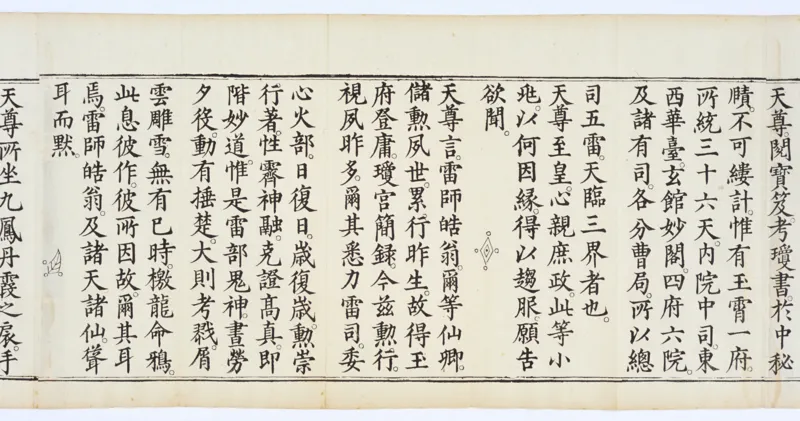 天尊。閱寶笈。考瓊書。於中秘
賾。不可縷計。惟有玉霄一府。
所統三十六天。内院中司。東
西華臺。玄館妙閣。四府六院。
及諸有司。各分曹局。所以總
司五雷。天臨三界者也。
天尊至皇。心親庶政。此等小
兆。以何因緣。得以趨服。願告
欲聞。
天尊言。雷師皓翁。爾等仙卿。
儲勲夙世。累行昨生。故得玉
府登庸。瓊宮簡録。今兹勲行。
視夙昨多。爾其悉力雷司。委
心火部。日復日。歲復歲。勲崇
行著。性霽神融。克證高真。即
階妙道。惟是雷部鬼神。晝勞
夕役。動有捶楚。大則考戮。屑
雲雕雪。無有已時。檄龍命鴉。
此息彼作。彼所因故。爾其耳
焉。雷師皓翁。及諸天諸仙。聳
耳而默。
天尊所坐九鳳丹霞之扆。手